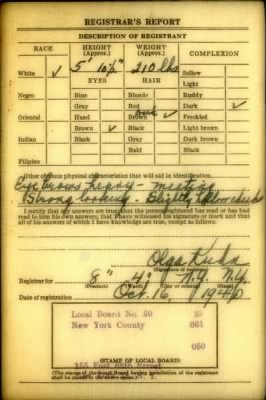 REGISTRAR'S REPORT
DESCRIPTION OF REGISTRANT
RACE HEIGHT (Approx.) WEIGHT (Approx.) COMPLEXION
White ✓ 5' 10½" 210 lbs Sallow
EYES HAIR Light
Negro Blue Blonde Ruddy
Gray Red Dark ✓
Oriental Hazel Dark Brown ✓ Freckled
Brown ✓ Black Light brown
Indian Black Gray Dark brown
Bald Black
Filipino
Other obvious physical characteristics that will aid in identification
Eye brows heavy - meeting
Strong looking - Slightly
I certify that my answers are true; that the person registered has read or has had
read to him his own answers; that I have witnessed his signature or mark and that
all of his answers of which I have knowledge are true, except as follows:
Olga Kuhn
(Signature of registrar)
Registrar for 8" 4" N.Y. N.Y.
(Precinct) (Ward) (State)
Date of registration Oct. 16, 1940
Local Board No. 50 28
New York County 061
050
155 East 88th Street
(STAMP OF LOCAL BOARD)
(The stamp of the Local Board having jurisdiction of the registrant
shall be placed in the above space.)